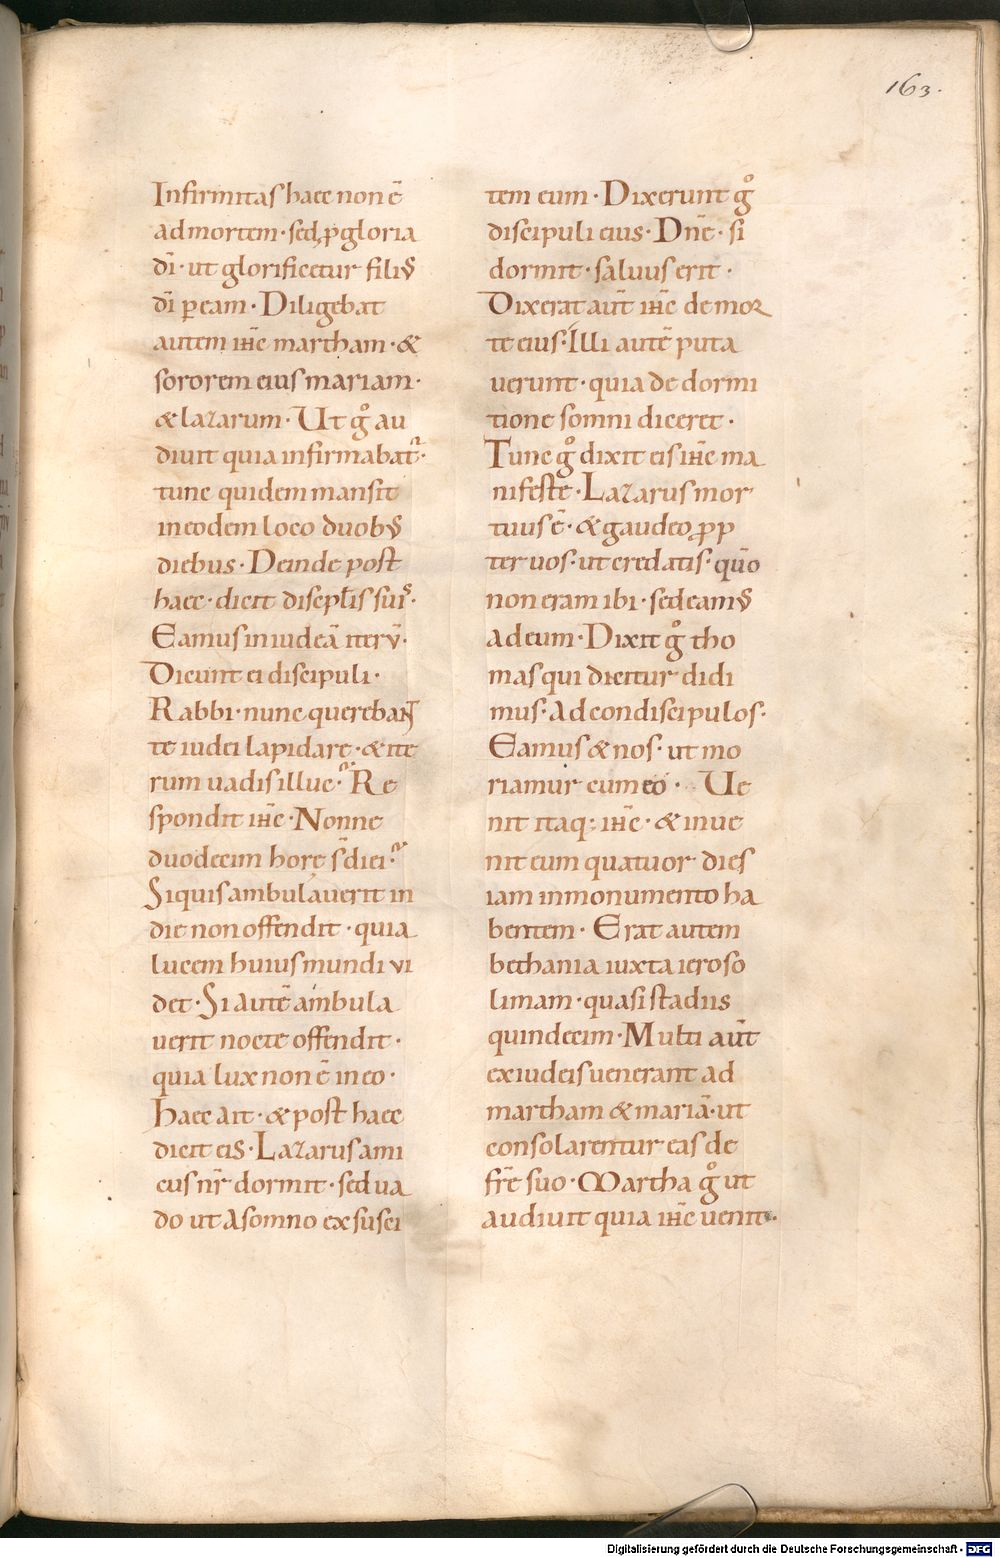 163.
Infirmitas haec non ē
ad mortem · sed p̱ gloria
dī · ut glorificetur filiꝰ
dī ꝑ eam · Diligebat
autem ihc̄ martham · &
sororem eius mariam ·
& lazarum · Ut gͦ au
diuit quia infirmabat᷑ ·
tunc quidem mansit
in eodem loco duobꝰ
diebus · Deinde post
haec · dicit discip̄lis suis ·
Eamus in iudeā iterū ·
Dicunt ei discipuli ·
Rabbi · nunc querebant
te iudei lapidare · & ite
rum uadis illuc · Re
spondit ihc̄ · Nonne
duodecim horę s̄ diei ·
Si quis ambulauerit in
die non offendit · quia
lucem huius mundi vi
det · Si autē ambula
uerit nocte offendit ·
quia lux non ē in eo ·
Haec ait · & post haec
dicit eis · Lazarus ami
cus nr̄ dormit · sed ua
do ut a somno ex susci
tem eum · Dixerunt gͦ
discipuli eius · Dnē · si
dormit · saluus erit ·
Dixerat aut̄ ihc̄ de mor
te eius · Illi autē puta
uerunt · quia de dormi
tione somni diceret ·
Tunc gͦ dixit eis ihc̄ ma
nifeste · Lazarus mor
tuus ē · & gaudeo p̱p
ter uos · ut credatis · qūo
non eram ibi · sed eamꝰ
ad eum · Dixit gͦ tho
mas qui dicitur didi
mus · ad condiscipulos ·
Eamus & nos · ut mo
riamur cum eo · Ue
nit itaq; ihc̄ · & inue
nit eum quatuor dies
iam in monumento ha
bentem · Erat autem
bethania iuxta ieroso
limam · quasi stadiis
quindecim · Multi aut̄
ex iudeis uenerant ad
martham & mariā · ut
consolarentur eas de
fr̄e suo · Martha gͦ ut
audiuit quia ihc̄ uenit ·
Digitalisierung gefördert durch die Deutsche Forschungsgemeinschaft - DFG